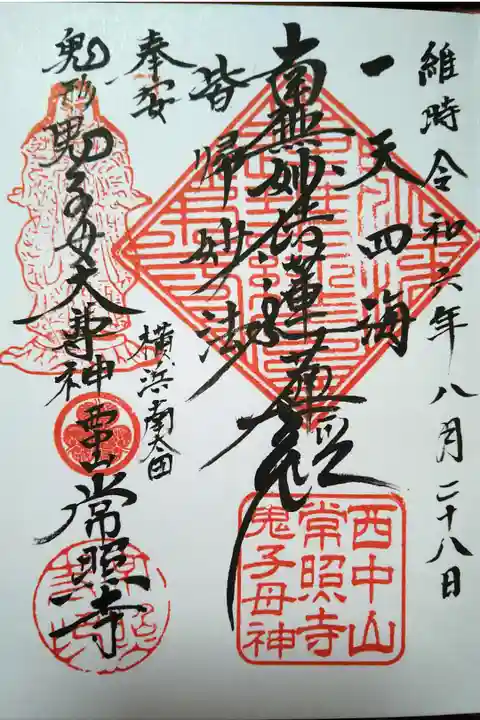 維時令和六年八月二十八日
一天四海
南無妙法蓮華経
皆帰妙法
奉安
鬼形鬼子母大尊神
横浜南太田
西中山
常照寺
西中山
常照寺
鬼子母神